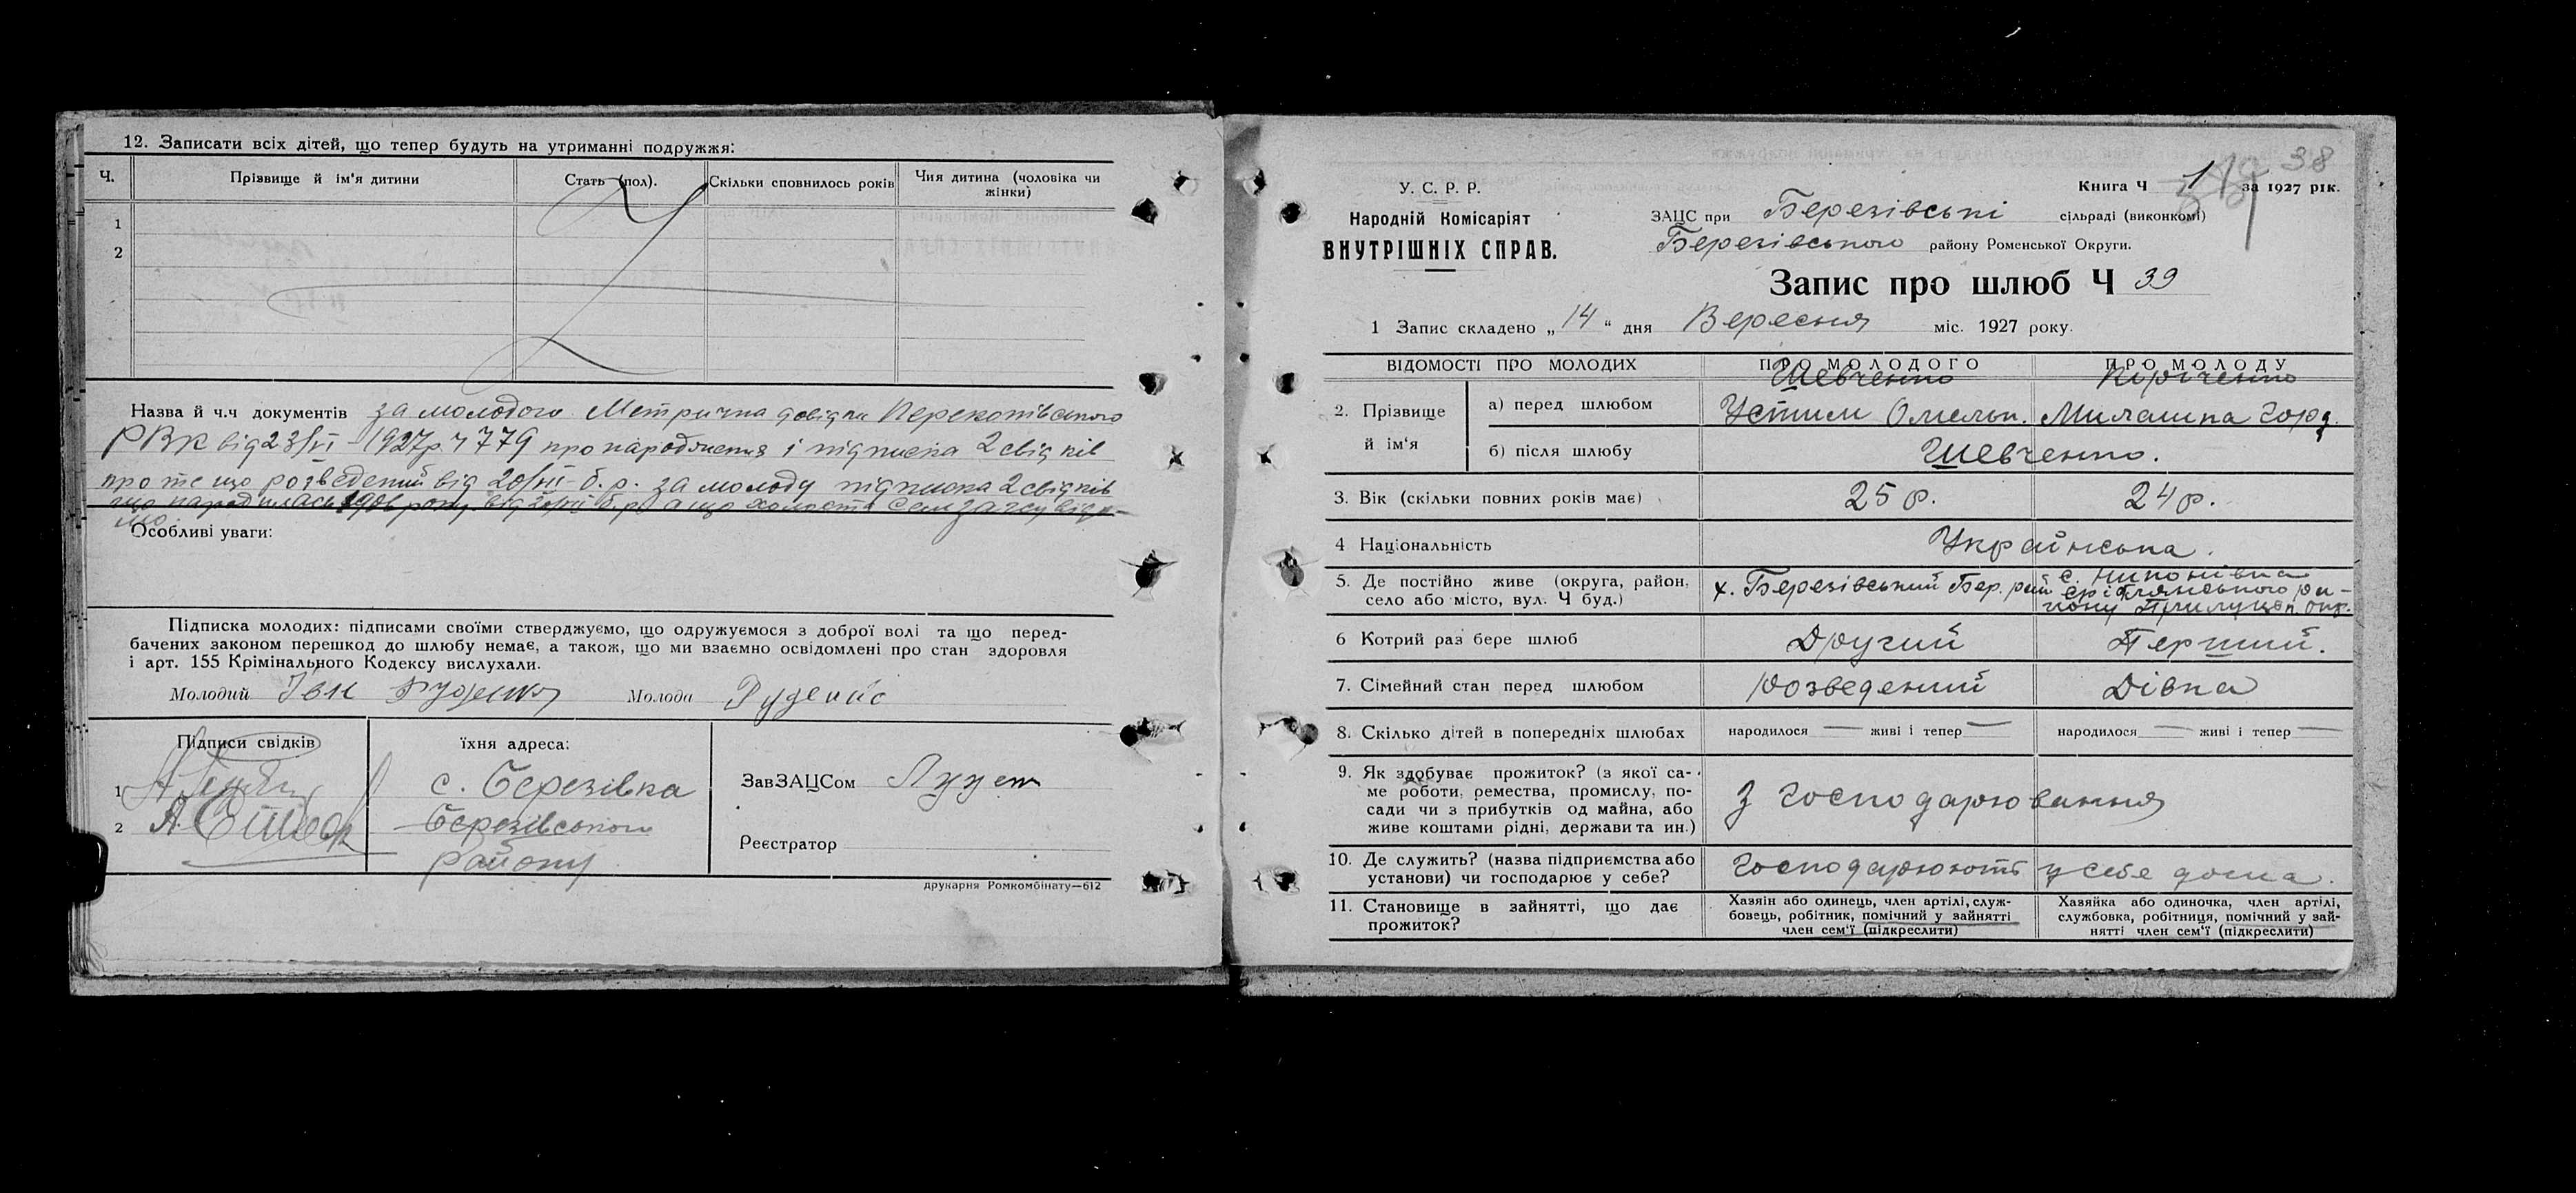 12. Записати всіх дітей, що тепер будуть на утриманні подружжя:
Ч. Прізвище й ім'я дитини Стать (пол). Скільки сповнилось років Чия дитина (чоловіка чи жінки)
1
2
Назва й ч.ч документів за молодого Метрична довідка Перекопівського
РВК від 23/VI - 1927р. ч 779 про народження і підписка 2 свідків
про те що розведений від 20/VII б. р. за молоду підписка 2 свідків
що народилась 1906 року від б. р. а що холоста сам
Особливі уваги:
Підписка молодих: підписами своїми стверджуємо, що одружуємося з доброї волі та що перед-
бачених законом перешкод до шлюбу немає, а також, що ми взаємно освідомлені про стан здоровля
і арт. 155 Крімінального Кодексу вислухали.
Молодий Молода
Підписи свідків їхня адреса:
1 с. Березівка
2 Березівського
району
ЗавЗАЦСом
Реєстратор
друкарня Ромкомбінату—612
38
У. С. Р. Р.
Народній Комісаріят
ВНУТРІШНІХ СПРАВ.
Книга Ч 1 за 1927 рік.
ЗАЦС при Березівські сільраді (виконкомі)
Березівського району Роменської Округи.
Запис про шлюб Ч 39
1 Запис складено „14“ дня Вересня міс. 1927 року.
ВІДОМОСТІ ПРО МОЛОДИХ ПРО МОЛОДОГО ПРО МОЛОДУ
2. Прізвище й ім'я
а) перед шлюбом Шевченко Устим Омельк. Киріченко Милашка Горд.
б) після шлюбу Шевченко.
3. Вік (скільки повних років має) 25 р. 24 р.
4 Національність Українська.
5. Де постійно живе (округа, район, село або місто, вул. Ч буд.) х. Березівський Бер. рай с. Срібнянського ра-
йону Прилуцьк окр.
6 Котрий раз бере шлюб Другий Перший.
7. Сімейний стан перед шлюбом Розведений Дівка
8. Скілько дітей в попередніх шлюбах народилося — живі і тепер — народилося — живі і тепер —
9. Як здобуває прожиток? (з якої са-
ме роботи, ремества, промислу, по-
сади чи з прибутків од майна, або
живе коштами рідні, держави та ин.) З господарювання
10. Де служить? (назва підприємства або
установи) чи господарює у себе? Господарюють у себе дома.
11. Становище в зайнятті, що дає
прожиток?
Хазяін або одинець, член артілі, служ-
бовець, робітник, помічний у зайнятті
член сем'ї (підкреслити)
Хазяйка або одиночка, член артілі,
службовка, робітниця, помічний у зай-
нятті член сем'ї (підкреслити)